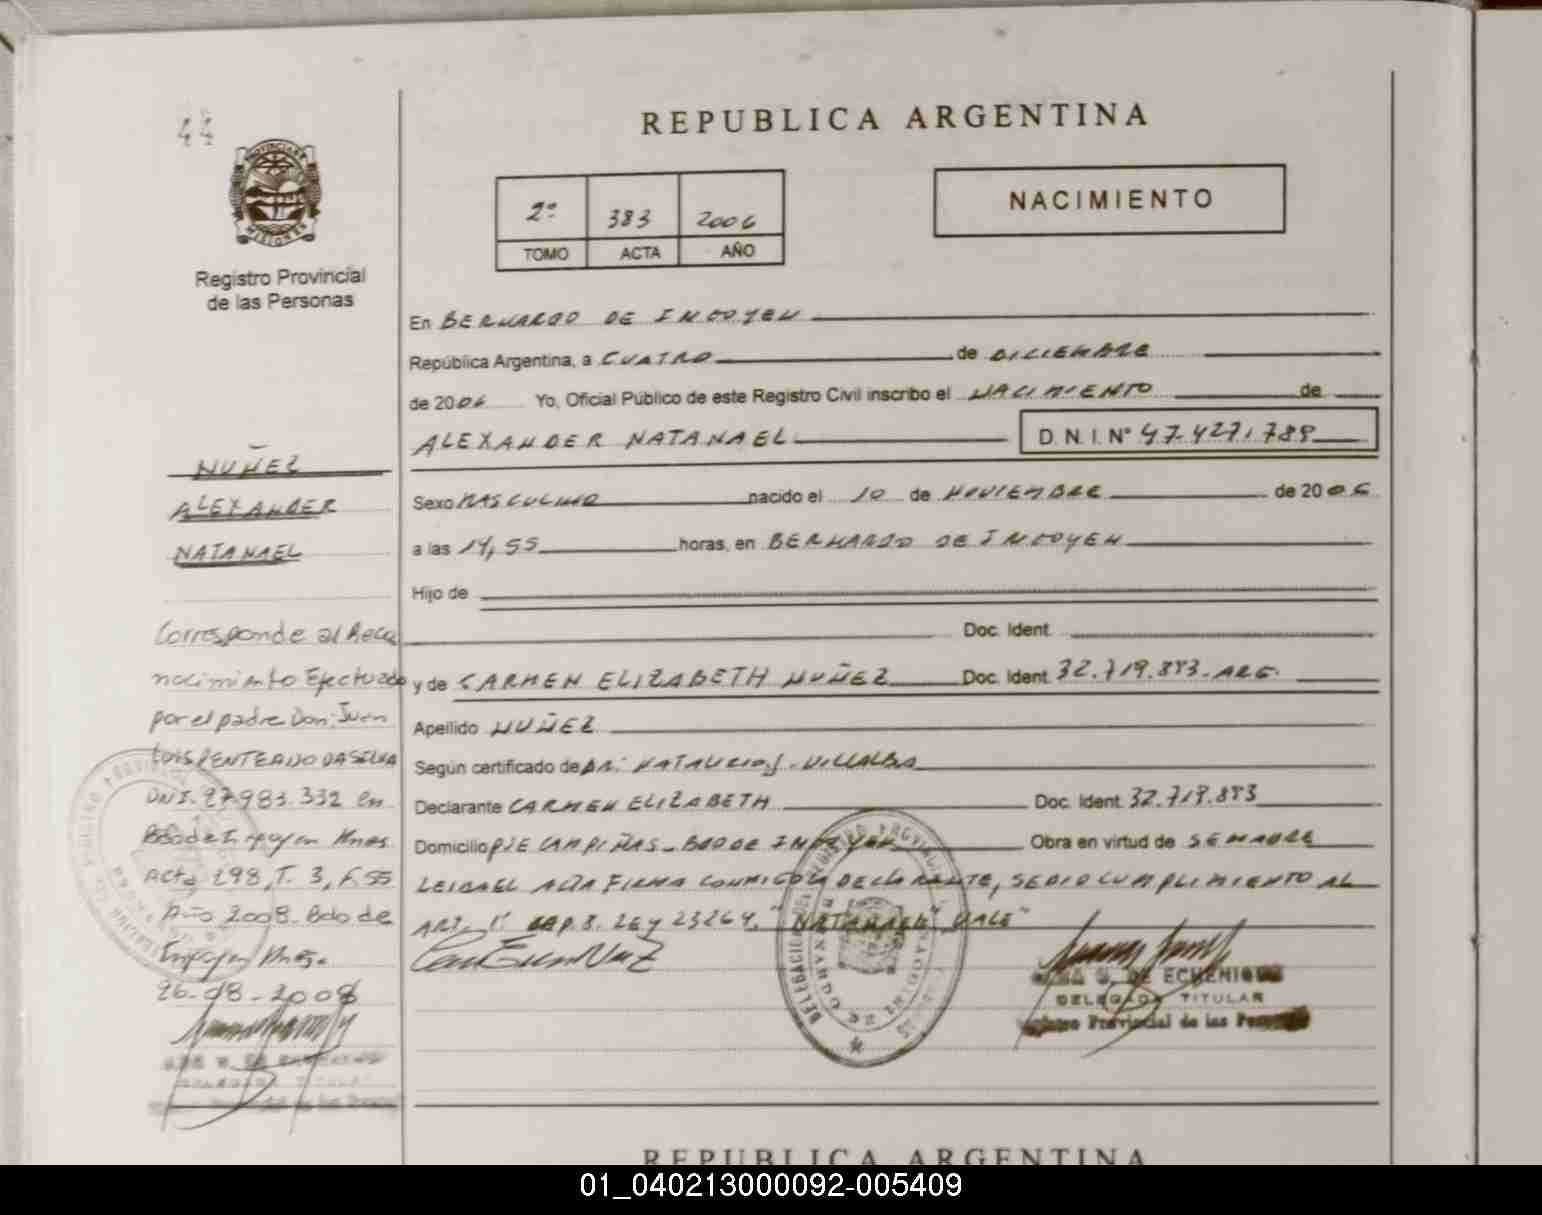 44
REPUBLICA ARGENTINA
NACIMIENTO
2º 383 2006
TOMO ACTA AÑO
PROVINCIA DE MISIONES
Registro Provincial
de las Personas
En BERNARDO DE IRIGOYEN
República Argentina, a CUATRO de DICIEMBRE
de 2006 Yo, Oficial Público de este Registro Civil inscribo el NACIMIENTO de
ALEXANDER NATANAEL D.N.I. Nº 47.427.789
Sexo MASCULINO nacido el 10 de NOVIEMBRE de 2006
a las 14,55 horas, en BERNARDO DE IRIGOYEN
Hijo de
Doc. Ident.
y de CARMEN ELIZABETH NUÑEZ Doc. Ident. 32.719.883-ARG.
Apellido NUÑEZ
Según certificado de DR. VILLALBA
Declarante CARMEN ELIZABETH Doc. Ident. 32.719.883
Domicilio PJE CAMPIÑAS-BDO DE IRIGOYEN Obra en virtud de SE MADRE
LEIDA EL ACTA FIRMA CONMIGO LA DECLARANTE, SE DIO CUMPLIMIENTO AL
ART. 1º CAP. 8. LEY 23264. "NATANAEL" VALE"
DE ECHENIQUE
DELEGADA TITULAR
Registro Provincial de las Personas
NUÑEZ
ALEXANDER
NATANAEL
Corresponde al Reco
nocimiento Efectuado
por el padre Don: Juan
LUIS PENTEADO DA SILVA
DNI. 27.983.332 en
Bdo de Irigoyen Mnes.
Acta 298, T. 3, F. 55
Año 2008. Bdo de
Irigoyen Mnes.
26-08-2008
DELEGADA TITULAR
REPUBLICA ARGENTINA
01_040213000092-005409